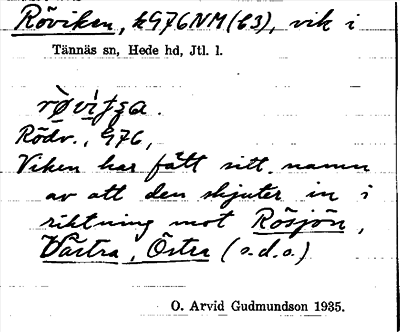 Röviken, k976NM(b3), vik i
Tännäs sn, Hede hd, Jtl. l.
Rödv., 976,
Viken har fått sitt namn
av att den skjuter in i
riktning mot Rösjön,
Västra, Östra (s.d.o.)
O. Arvid Gudmundson 1935.